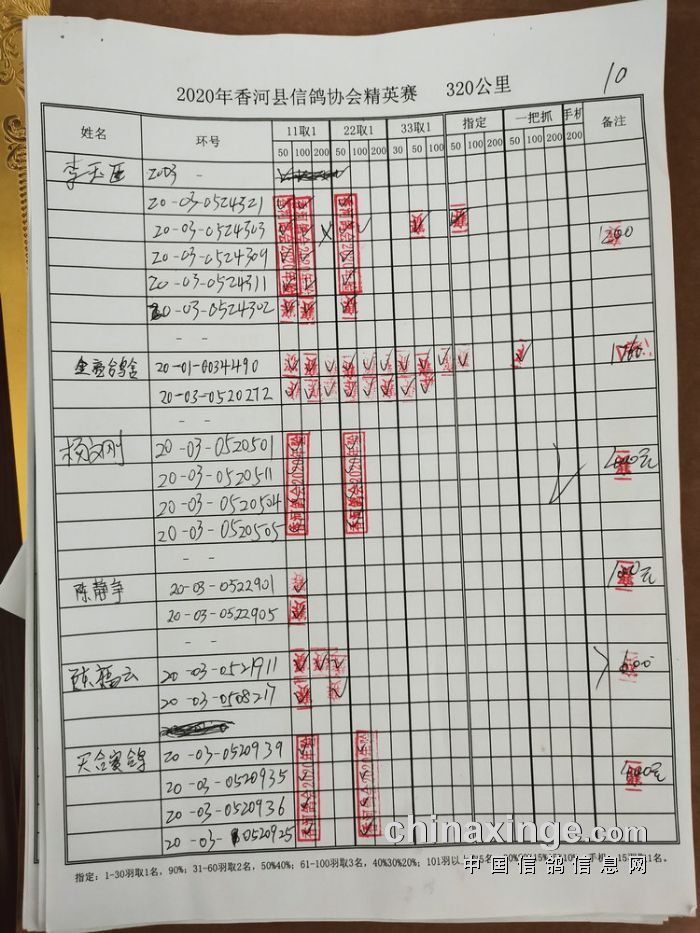 10
2020年香河县信鸽协会精英赛 320公里
姓名 环号 11取1 22取1 33取1 指定 一把抓 手机 备注
50 100 200 50 100 200 30 50 100 50 100 200 50 100 200 200
2003 -
20-03-0524321
20-03-0524303 1200
20-03-0524309
20-03-0524311
20-03-0524302
- -
20-01-0034490
20-03-0520272
- -
杨文刚 20-03-0520501
20-03-0520511
20-03-0520504
20-03-0520505
- -
陈静争 20-03-0522901
20-03-0522905
- -
陈福云 20-03-0521911 600
20-03-0508217
天合赛鸽 20-03-0520939
20-03-0520935
20-03-0520936
20-03-0520925
指定：1-30羽取1名，90%；31-60羽取2名，50%40%；61-100羽取3名，40%30%20%；101羽以上
chinaxinge.com
中国信鸽信息网